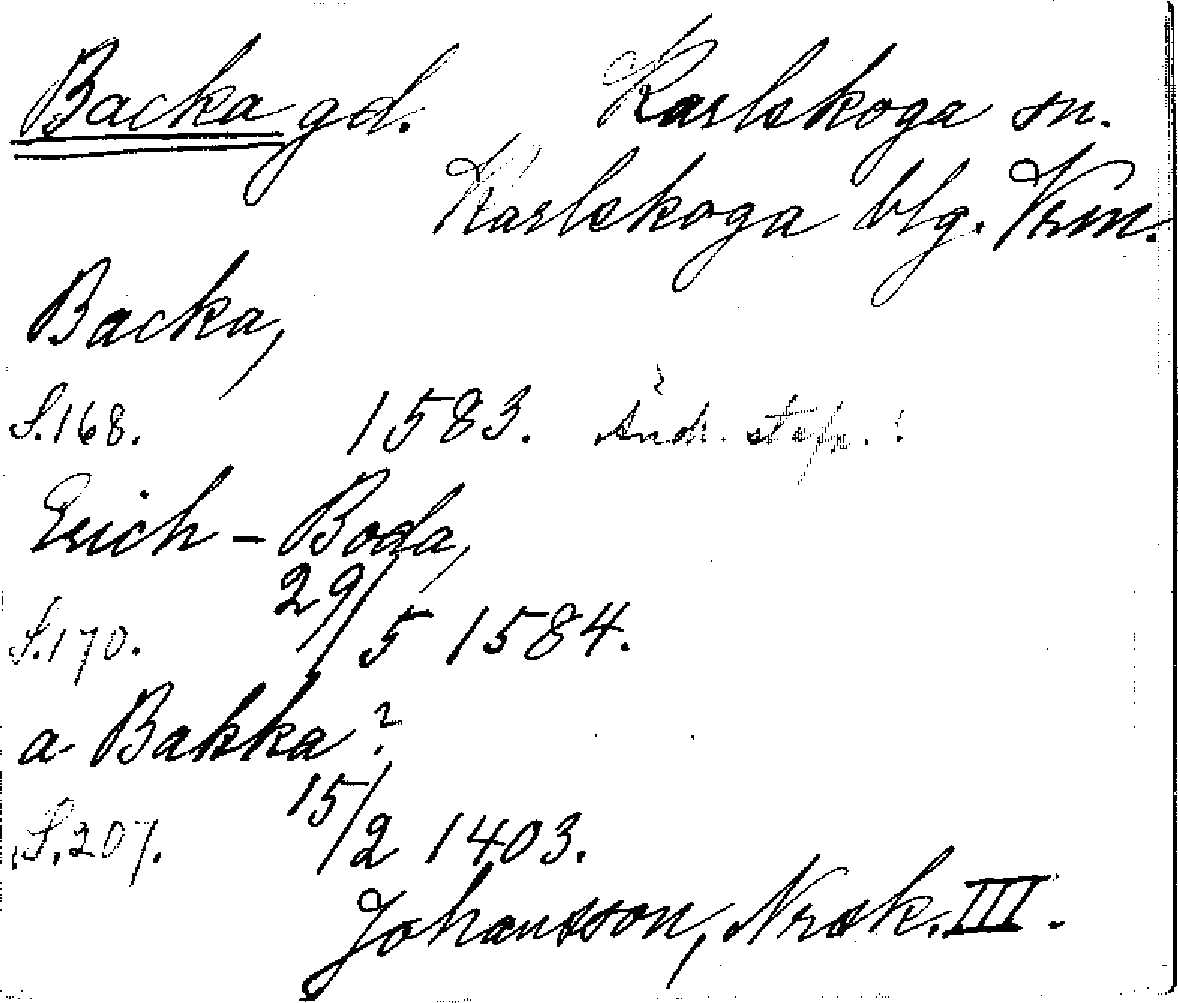 Backa gd. Karlskoga sn.
Karlskoga blg. Vrm.
Backa,
S.168. 1583.
Erich - Boda,
S.170. 29/5 1584.
a Bakka?
S.207. 15/2 1403.
Johansson, Nrsk. III.